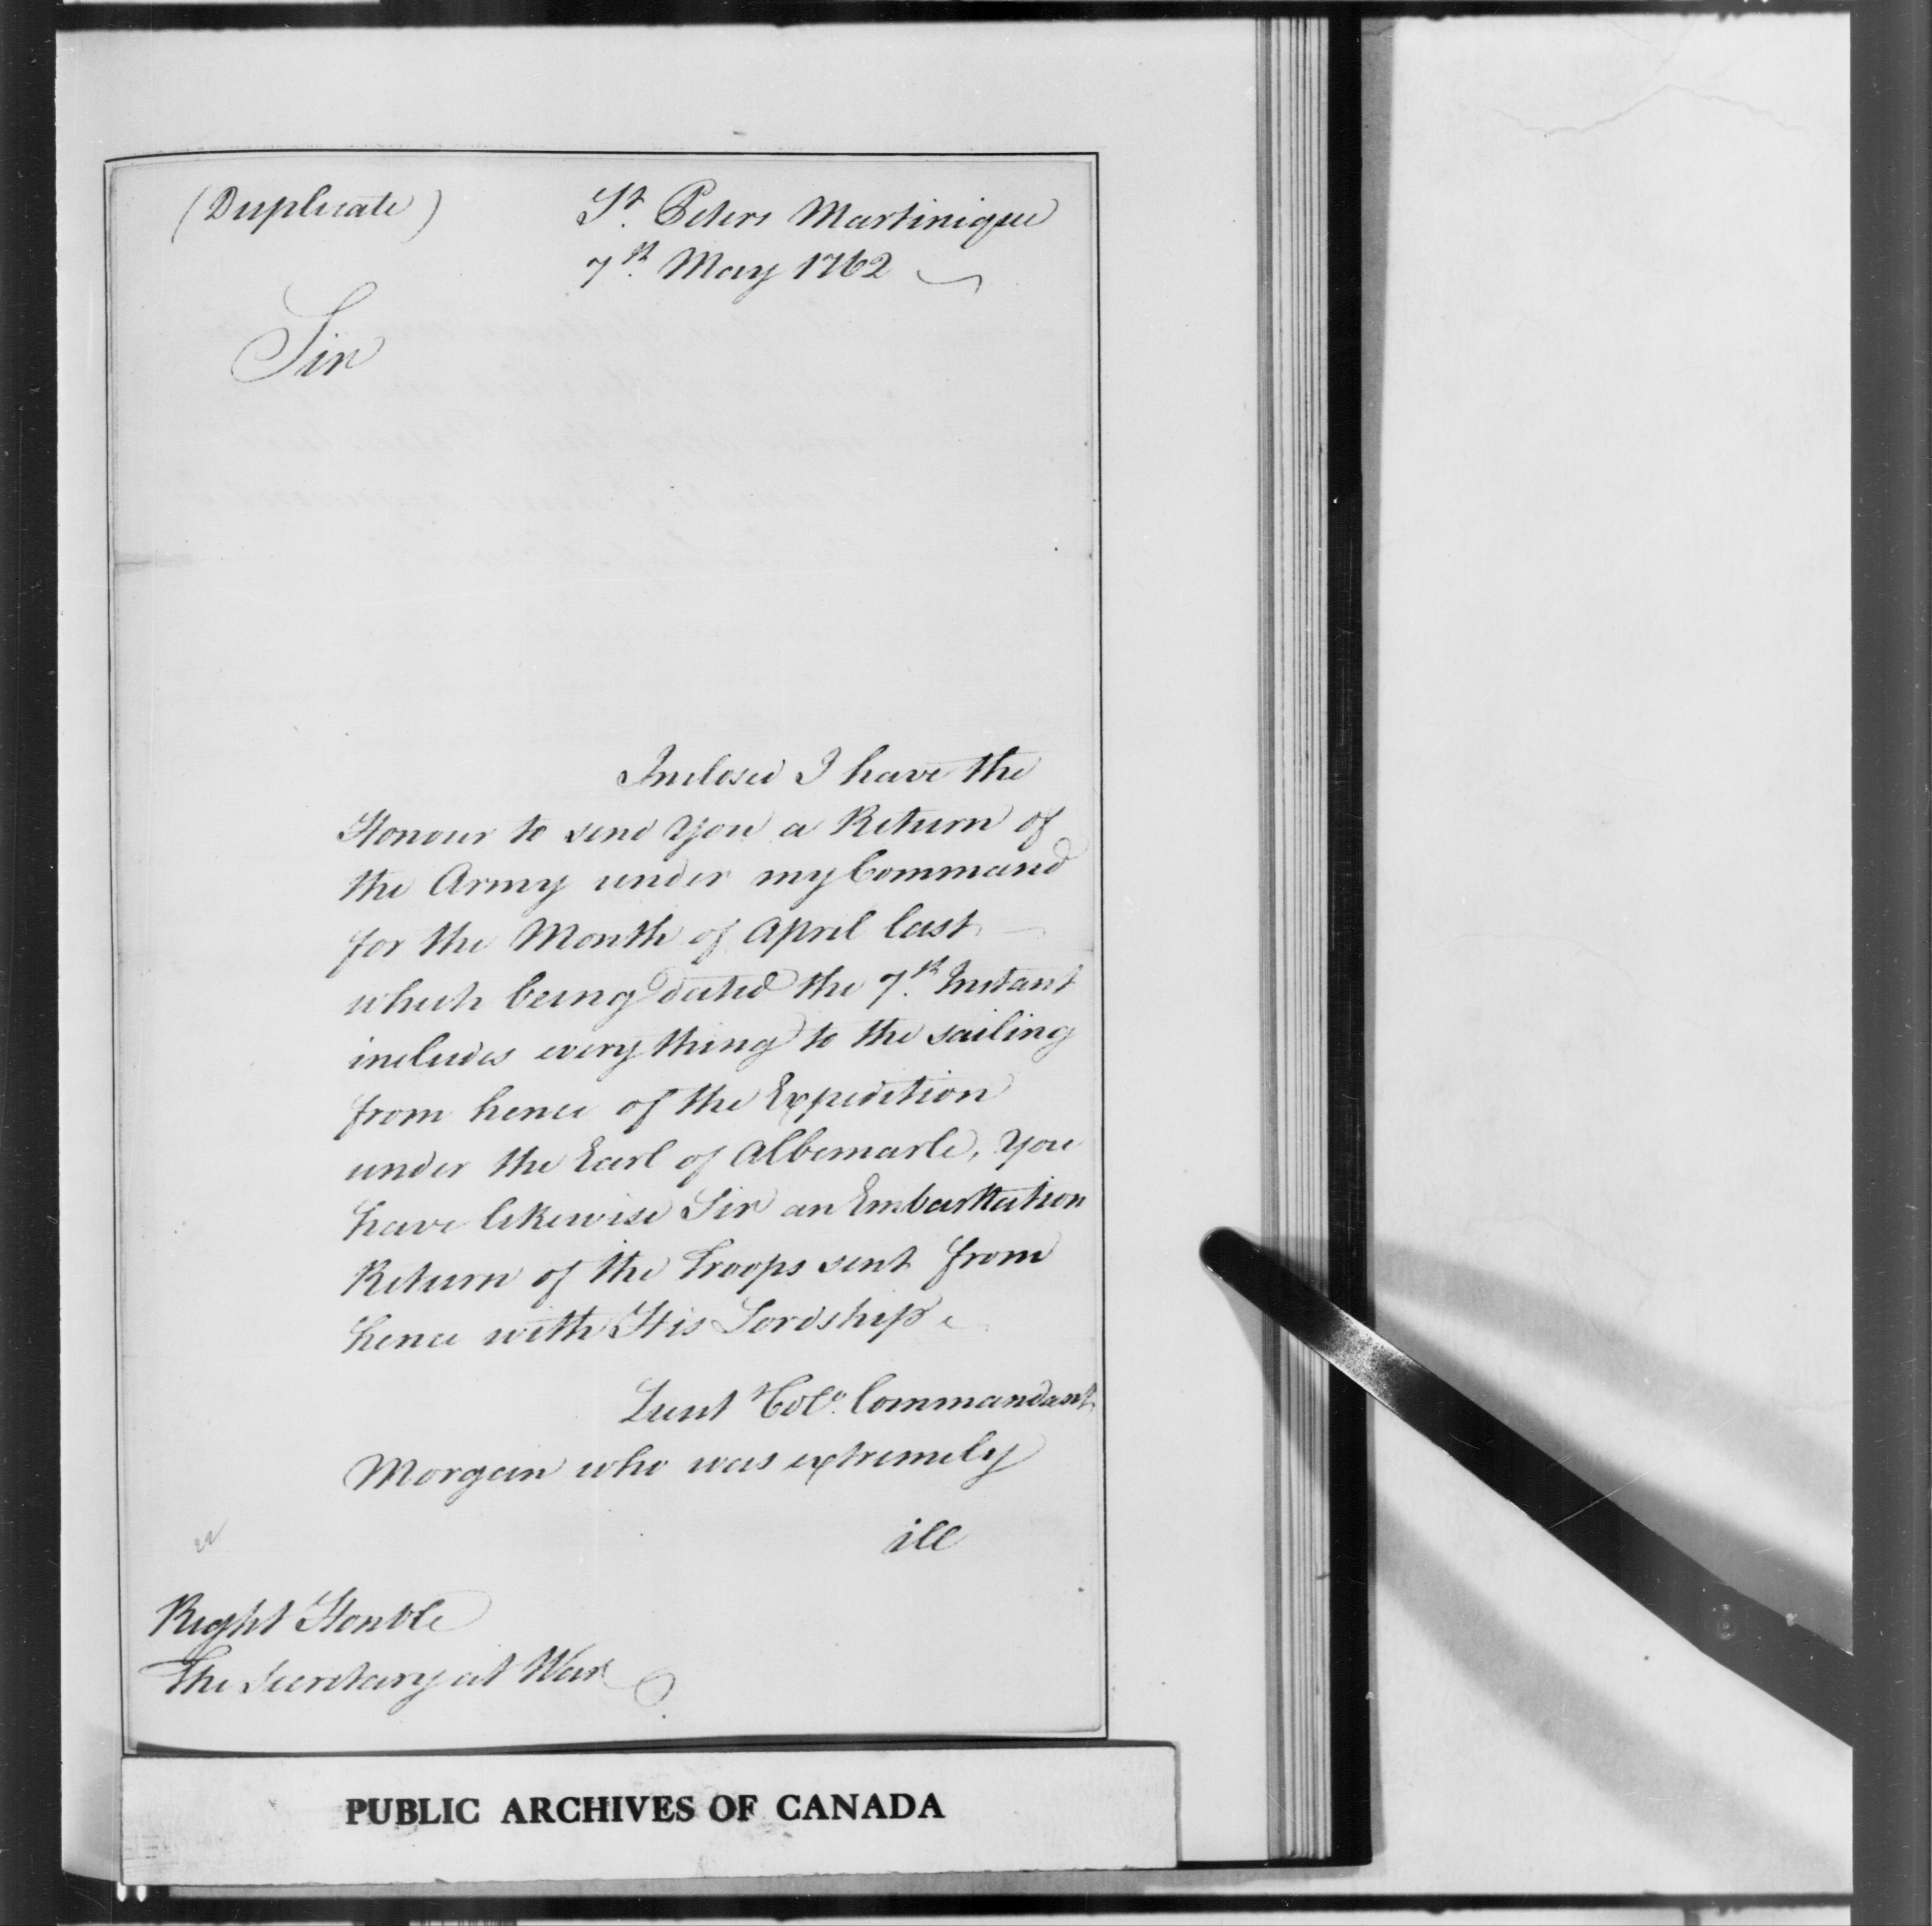 (Duplicate)
St. Peters Martinique
7th. May 1762
Sir
Inclosed I have the
Honour to send You a Return of
the Army under my Command
for the Month of April last
which being dated the 7th. Instant
includes every thing to the sailing
from hence of the Expedition
under the Earl of Albemarle, You
have likewise Sir an Embarkation
Return of the Troops sent from
hence with His Lordship
Lieut Colo. Commandant
Morgan who was extremely
ill
Right Honble
The Secretary at War
PUBLIC ARCHIVES OF CANADA